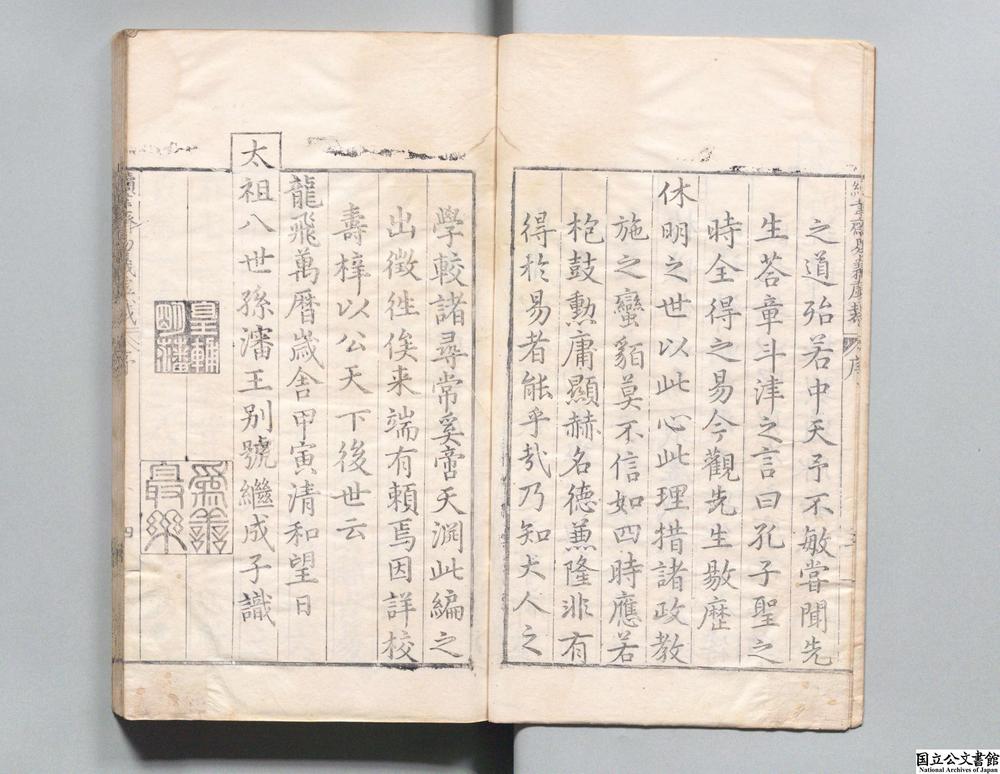 之道殆若中天予不敏嘗聞先
生荅章斗津之言曰孔子聖之
時全得之易今觀先生敭歷
休明之世以此心此理措諸政教
施之蠻貊莫不信如四時應若
枹鼓勲庸顯赫名德蒹隆非有
得於易者能乎㢤乃知大人之
學較諸尋常奚啻天淵此編之
出徵徃俟来端有頼焉因詳校
壽梓以公天下後世云
龍飛萬曆歲舎甲寅清和望日
太祖八世孫瀋王別號繼成子識
皇明
輔藩
爲善
最樂
四
国立公文書館
National Archives of Japan